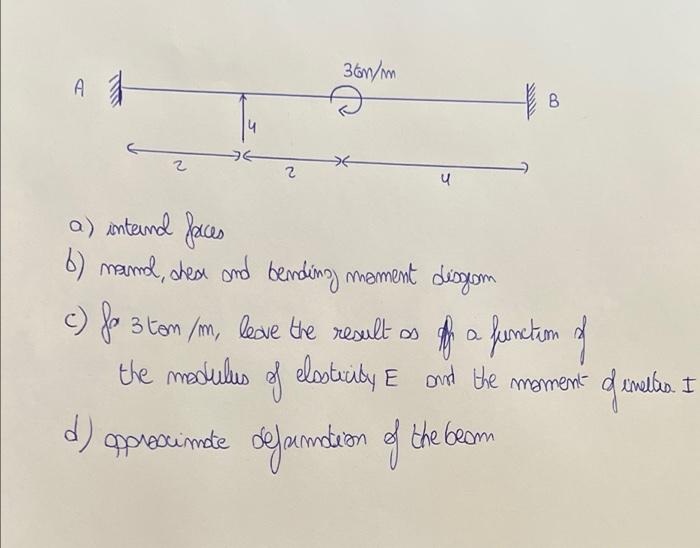 3 ton/m
A
B
4
2
2
4
a) internal forces
b) normal, shear and bending moment diagram
c) for 3 ton/m, leave the result as a function of
the modulus of elasticity E and the moment of inertia I
d) approximate deformation of the beam